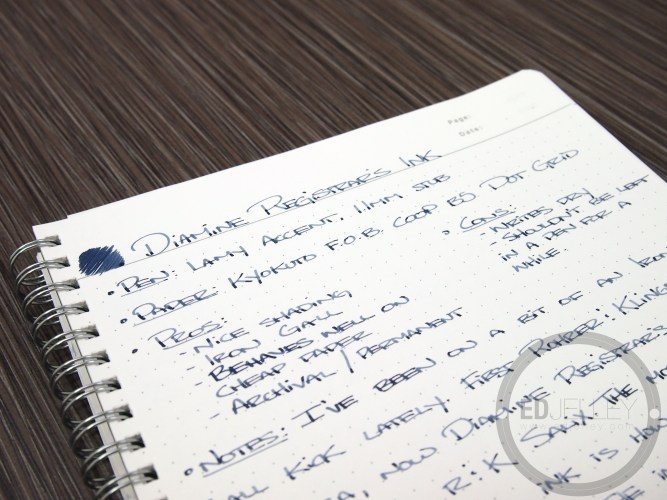 Page:
Date:
Diamine Registrar's Ink
• Pen: Lamy Accent, 1.1mm stub
• Paper: Kyokuto F.O.B. Coop B5 Dot Grid
• Pros:
- Nice shading
- Iron Gall
- Behaves well on
cheap paper
- Archival / permanent
• Cons:
- Writes dry
- Shouldn't be left
in a pen for a
while.
• Notes: I've been on a bit of an Iron
Gall kick lately. First Rohrer & Kling
, now Diamine Registrar's
R&K Salix, the
ink is
EDJELLEY